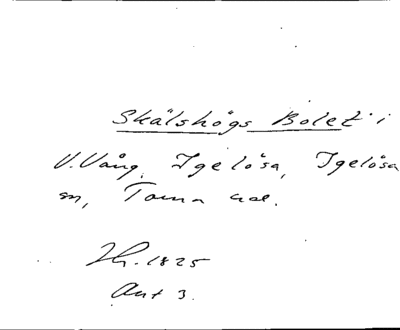 Skälshögs Bolet i
V. Vång, Igelösa, Igelösa
sn, Torna hd.
Ih. 1825
Akt 3.